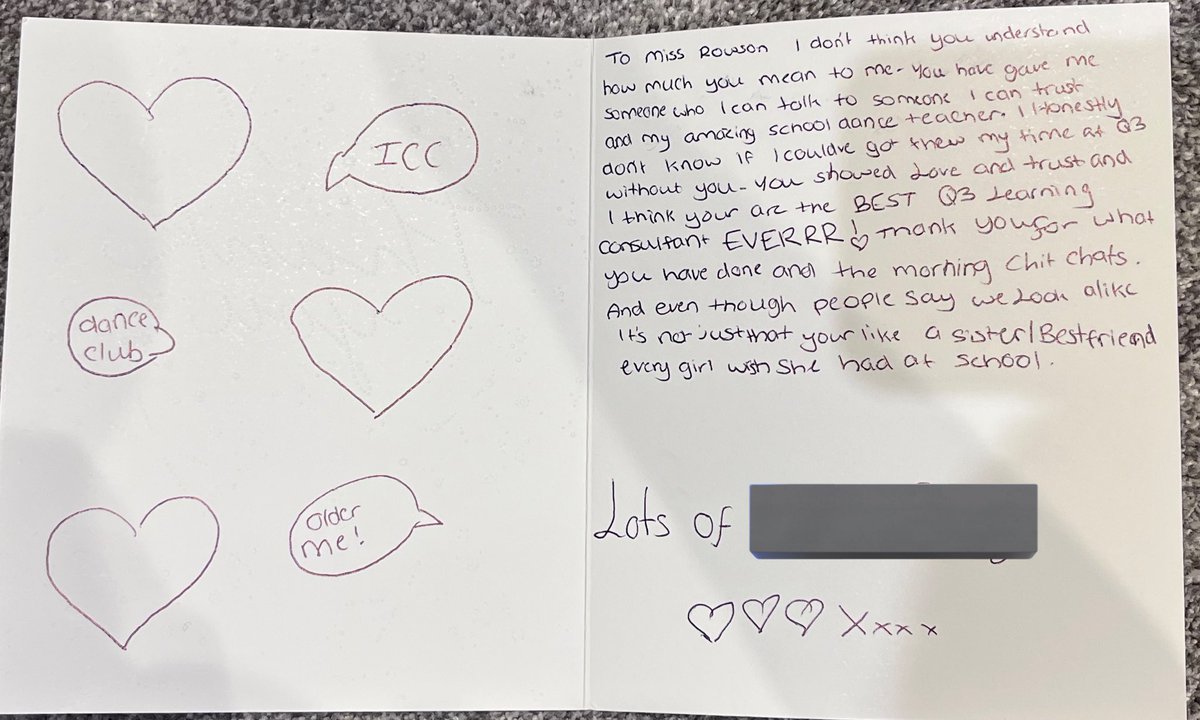 ICC
dance
club
older
me!
To Miss Rowson I don't think you understand
how much you mean to me - You have gave me
someone who I can talk to someone I can trust
and my amazing school dance teacher. I Honestly
don't know if I couldve got threw my time at Q3
without you - you showed Love and trust and
I think your are the BEST Q3 Learning
consultant EVERRR! Thank you for what
you have done and the morning Chit chats.
And even though people say we Look alike
It's not just that your like a sister/Bestfriend
every girl wish she had at school.
Lots of
Xxxx